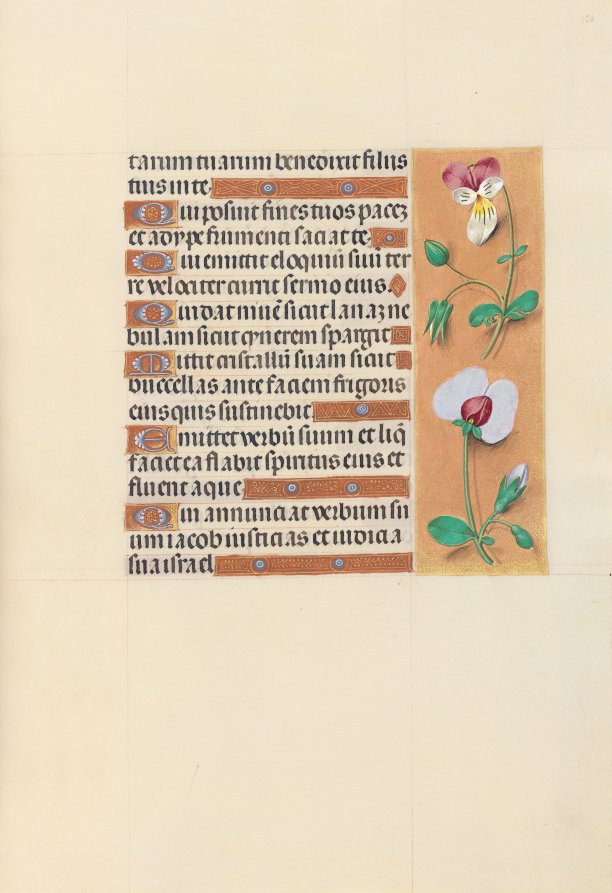 tarum tuarum benedixit filijs
tuis in te
Qui posuit fines tuos pacez
et adype frumenti saciat te
Qui emittit eloquiū suū ter
re velociter currit sermo eius.
Qui dat nivē sicut lanaz ne
bulam sicut cynerem spargit
Mittit cristallū suam sicut
buccellas ante faciem frigoris
eius quis sustinebit
Emittet verbū suum et liq̄
faciet ea flabit spiritus eius et
fluent aque
Qui annunciat verbum su
um iacob iusticias et iudicia
sua israel